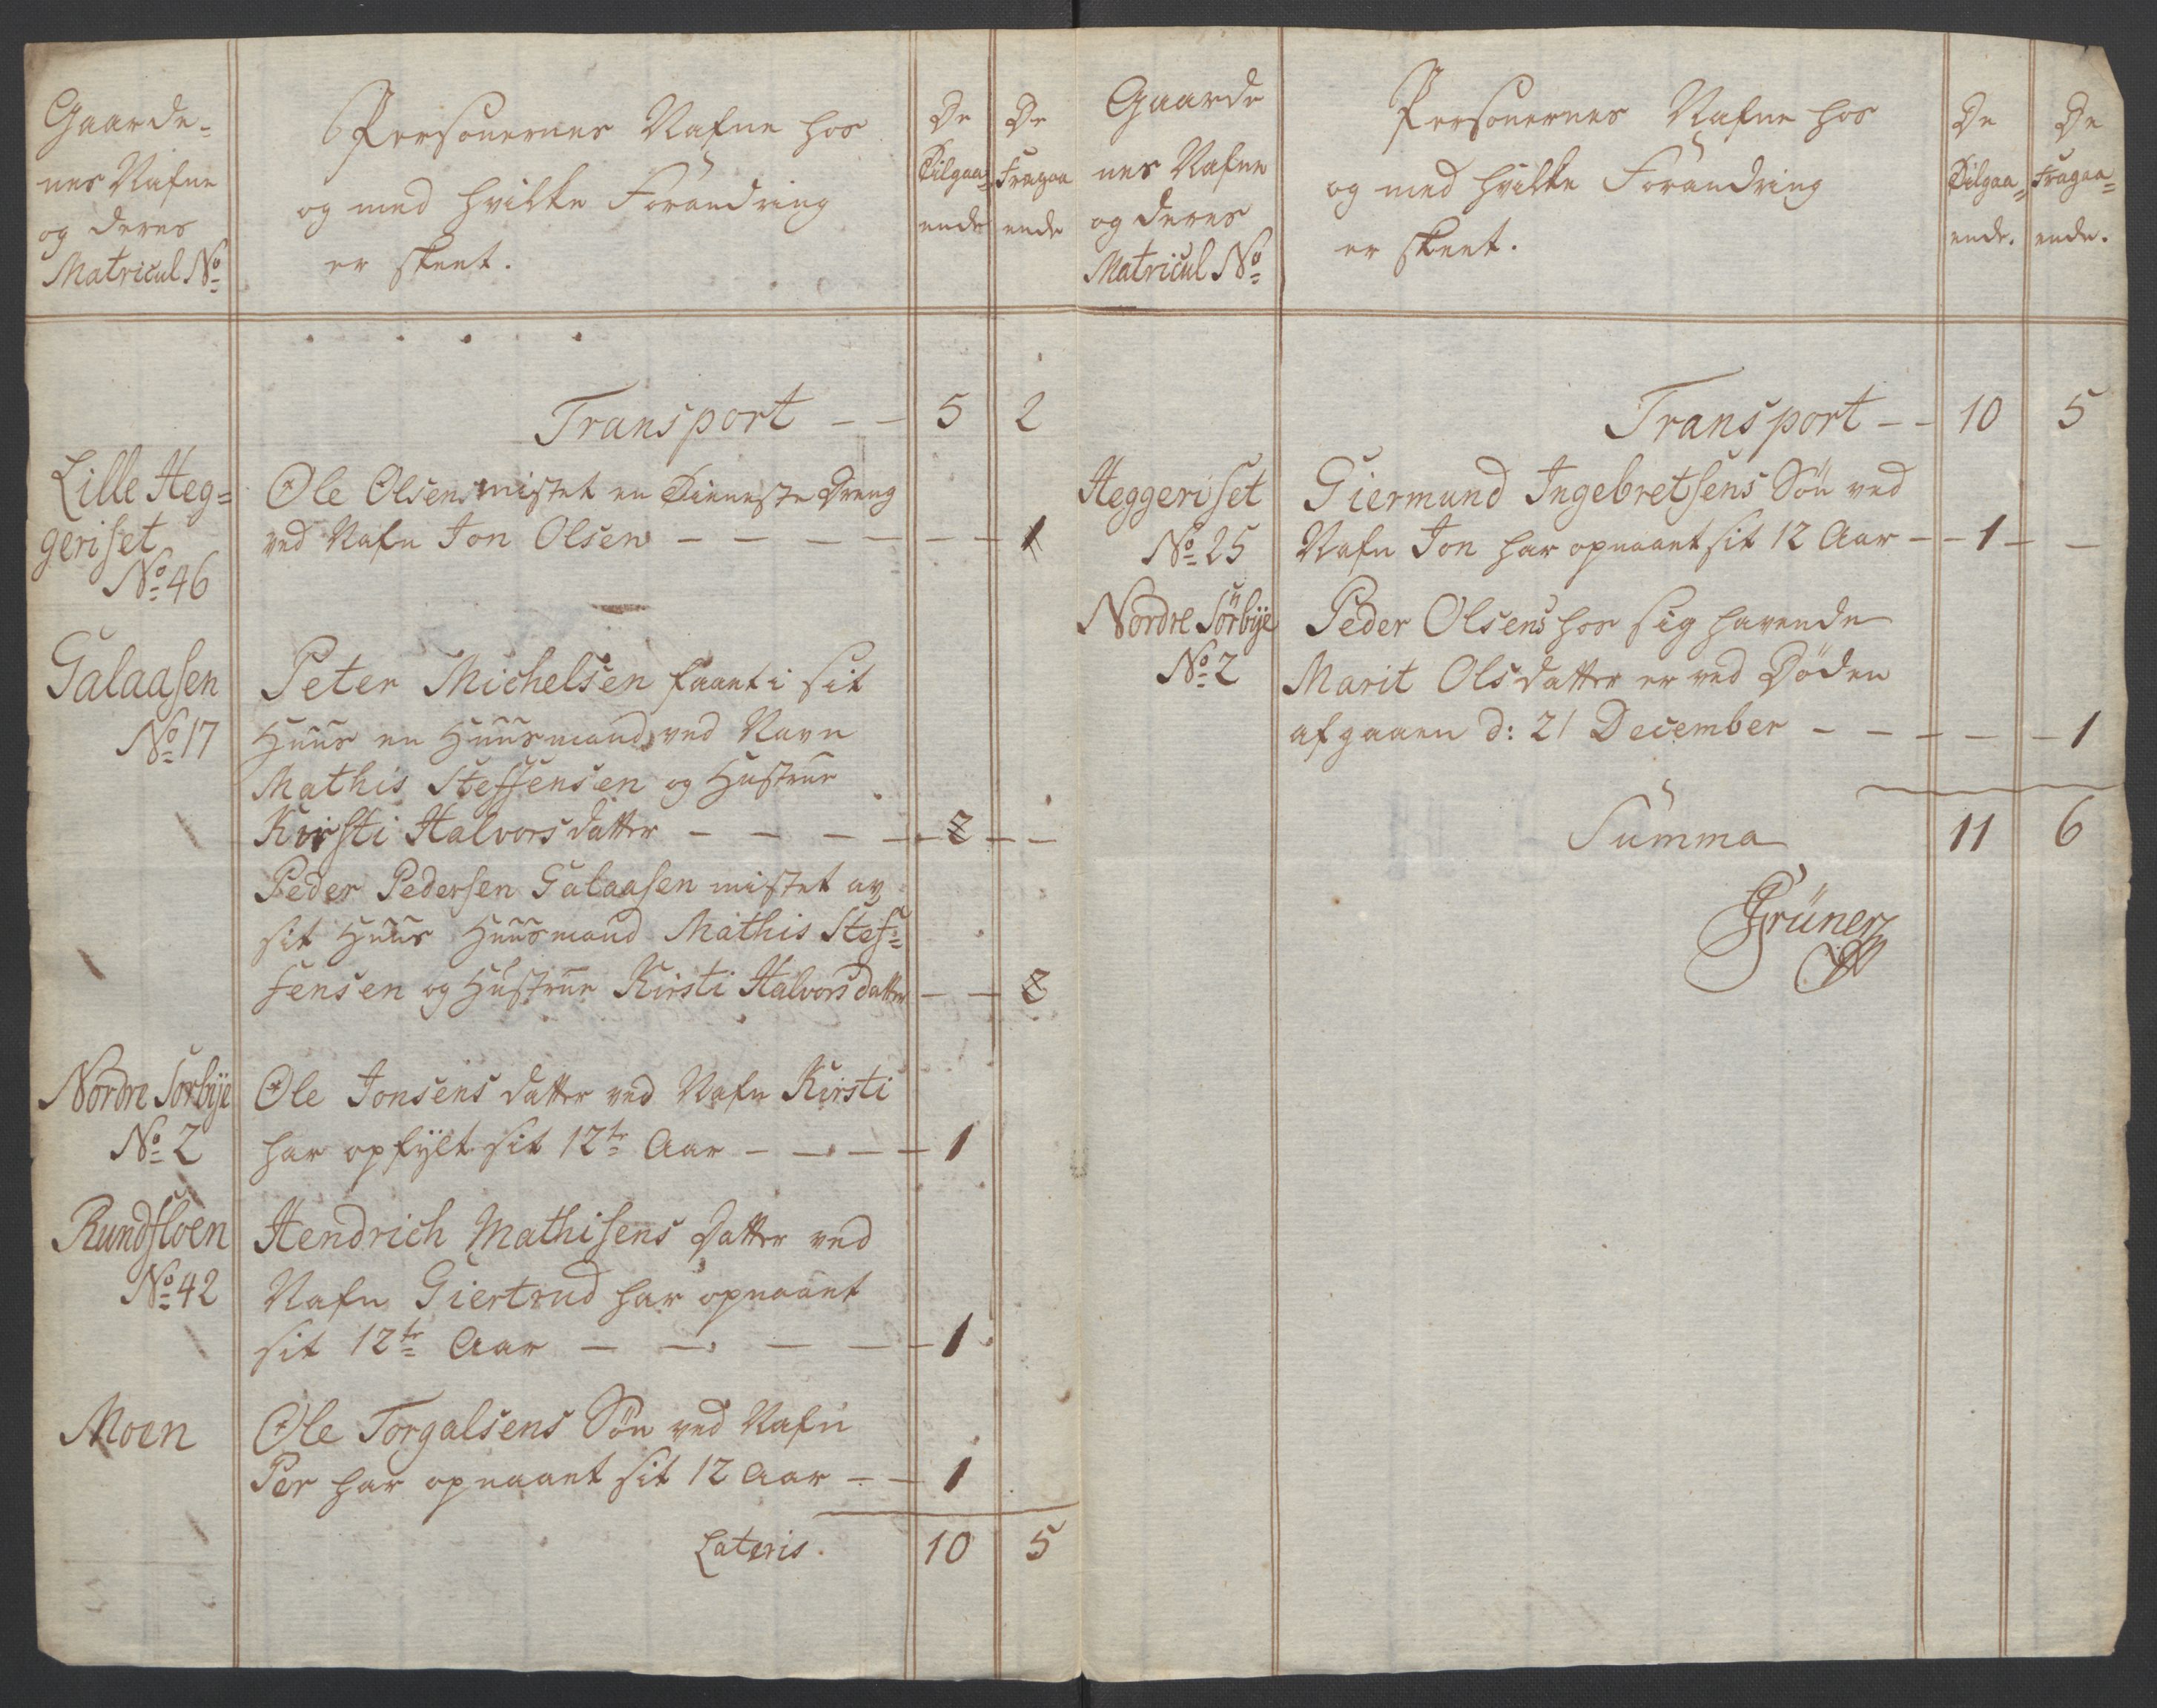 Gaarde-
nes Nafne
og deres
Matricul No
Personernes Nafne hos
og med hvilke Forandring
er skeet.
De
Tilgaa-
ende
De
Fragaa
ende
Transport — — 5 2
Lille Heg-
geriset
No 46
Ole Olsens mistet en Tieneste Dreng
ved Nafn Jon Olsen — — — — — — — 1
Galaasen
No 17
Peter Michelsen faaet i sit
Huus en Huusmand ved Navn
Mathis Steffensen og Hustrue
Kirsti Halvorsdatter — — — — 2 — —
Peder Pedersen Galaasen mistet av
sit Huus Huusmand Mathis Stef-
fensen og Hustrue Kirsti Halvorsdatter — — 2
Nordre Sörbÿe
No 2
Ole Jonsens datter ved Nafn Kirsti
har opfÿlt sit 12te Aar — — — — 1
Rundfloen
No 42
Hendrich Mathisens datter ved
Nafn Giertrud har opnaaet
sit 12te Aar — — — — — 1
Moen
Ole Torgalsens Sön ved Nafn
Per har opnaaet sit 12 Aar — — 1
Lateris. 10 5
Gaarde
nes Nafne
og deres
Matricul No
Personernes Nafne hos
og med hvilke Forandring
er skeet.
De
Tilgaa-
ende.
De
Fragaa-
ende.
Transport — — 10 5
Heggeriset
No 25
Giermund Ingebretsens Sön ved
Nafn Jon har opnaaet sit 12 Aar — — 1 — —
Nordre Sörbÿe
No 2
Peder Olsens hos sig havende
Marit Olsdatter er ved Döden
afgaaen d: 21 December — — — — — 1
Summa 11 6
Grüner